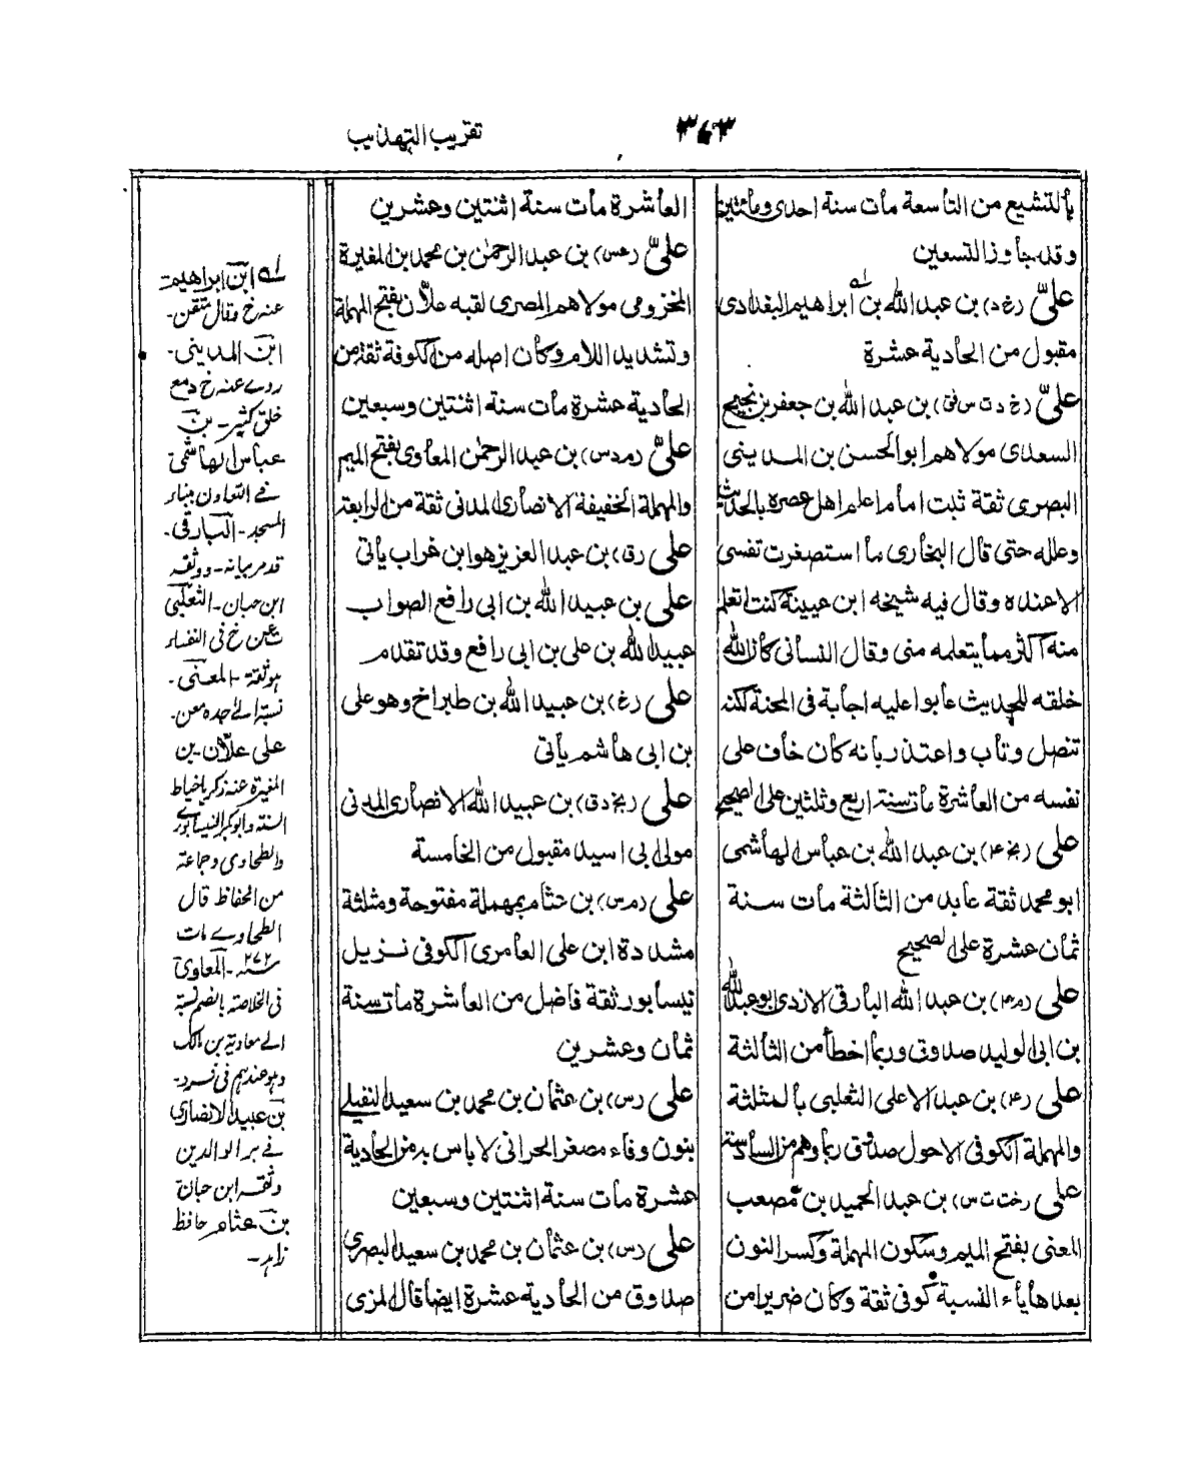 تقريب التهذيب
٣٦٣
بالتشيع من التاسعة مات سنة احدى ومائتين
وقد جاوز التسعين
علىّ (خ د) بن عبد الله بن ابراهيم البغدادى
مقبول من الحادية عشرة
علىّ (خ د ت س فق) بن عبد الله بن جعفر بن نجيح
السعدى مولاهم ابو الحسن بن المدينى
البصرى ثقة ثبت امام اعلم اهل عصره بالحديث
وعلله حتى قال البخارى ما استصغرت نفسى
الا عنده وقال فيه شيخه ابن عيينة كنت اتعلم
منه اكثر مما يتعلمه منى وقال النسائى كأن الله
خلقه للحديث عابوا عليه اجابة فى المحنة لكنه
تنصل وتاب واعتذر بانه كان خاف على
نفسه من العاشرة مات سنة اربع وثلثين على الصحيح
على (بخ ٤) بن عبد الله بن عباس الهاشمى
ابو محمد ثقة عابد من الثالثة مات سنة
ثمان عشرة على الصحيح
على (م ٤) بن عبد الله البارقى الازدى ابو عبد الله
بن ابى الوليد صدوق وربما اخطأ من الثالثة
على (٤) بن عبد الاعلى الثعلبى بالمثلثة
والمهملة الكوفى الاحول صدوق ربما وهم من السادسة
على (خت ت س) بن عبد الحميد بن مصعب
المعنى بفتح الميم وسكون المهملة وكسر النون
بعدها ياء النسبة كوفى ثقة وكان ضريرا من
العاشرة مات سنة اثنتين وعشرين
علىّ (عس) بن عبد الرحمٰن بن محمد بن المغيرة
المخزومى مولاهم المصرى لقبه علّان بفتح المهملة
وتشديد اللام وكان اصله من الكوفة ثقة من
الحادية عشرة مات سنة اثنتين وسبعين
علىّ (م د س) بن عبد الرحمٰن المعاوى بفتح الميم
والمهملة الخفيفة الانصارى المدنى ثقة من الرابعة
على (ق) بن عبد العزيز هو ابن غراب يأتى
على بن عبيد الله بن ابى رافع الصواب
عبيد الله بن على بن ابى رافع وقد تقدم
على (خ) بن عبيد الله بن طبراخ وهو على
بن ابى هاشم يأتى
على (بخ د ق) بن عبيد الله الانصارى المدنى
مولى ابى اسيد مقبول من الخامسة
على (م س) بن عثام بمهملة مفتوحة ومثلثة
مشددة ابن على العامرى الكوفى نزيل
نيسابور ثقة فاضل من العاشرة مات سنة
ثمان وعشرين
على (س) بن عثمان بن محمد بن سعيد النفيلى
بنون وفاء مصغر الحرانى لا باس به من الحادية
عشرة مات سنة اثنتين وسبعين
على (س) بن عثمان بن محمد بن سعيد البصرى
صدوق من الحادية عشرة ايضا قال المزى
له ابن ابراهيم
عنه خ وقال متقن-
ابن المدينى-
روے عنه خ د مع
خلق كثير- بن
عباس الهاشمى
فى التعاون ببناء
المسجد- البارقى-
قدم بيانه- ووثقه
ابن حبان- الثعلبى
عن خ فى النفساء
هو ثقة- المعنى-
نسبة الى جده معن-
على علّان- بن
المغيرة عنه زكريا خياط
السنة وابو بكر النيسابورے
والطحاوى وجماعة
من الحفاظ قال
الطحاوے مات
سنه ٢٧٢- المعاوى
فى الخلاصة بالضم نسبة
الى معاوية بن مالك
وهو عندهم فى فرد-
بن عبيد الانصارى
فى بر الوالدين
وثقه ابن حبان
بن عثام حافظ
زاهد-